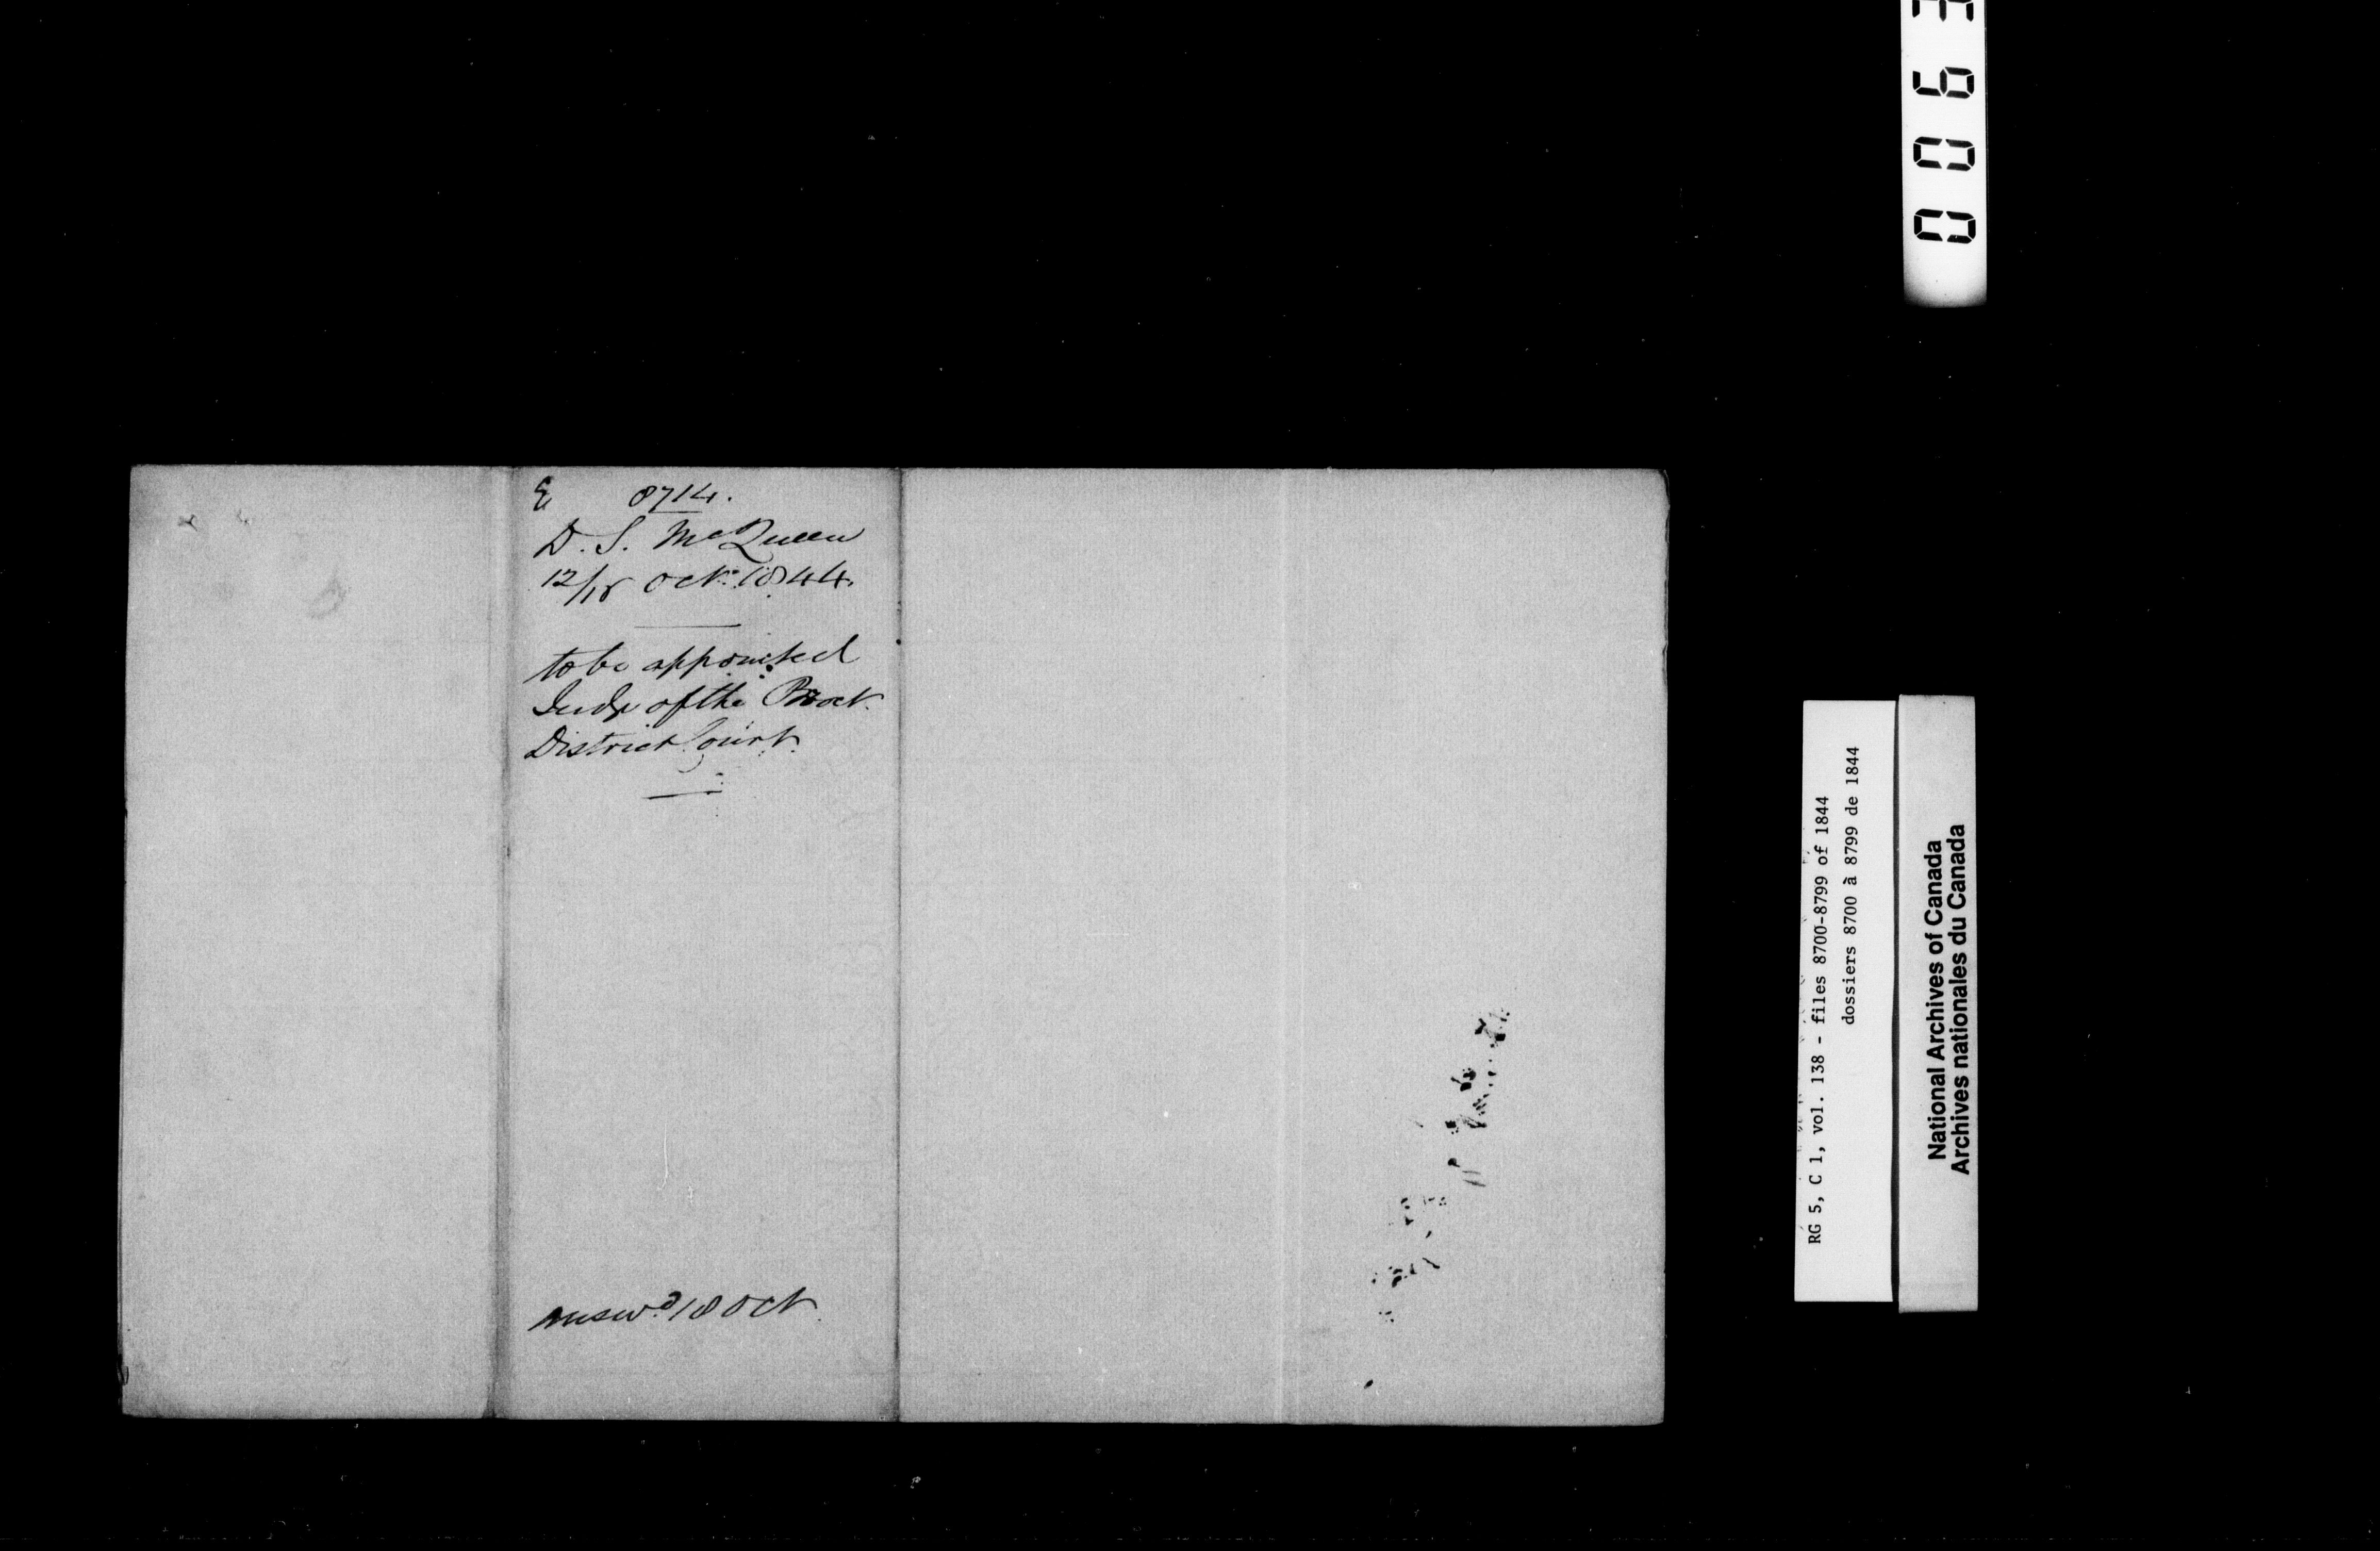 E 8714.
D. S. McQueen
12/18 Oct. 1844.
to be appointed
Judge of the Brock
District Court.
Answd. 18 Oct
0063
RG 5, C 1, vol. 138 - files 8700-8799 of 1844
dossiers 8700 à 8799 de 1844
National Archives of Canada
Archives nationales du Canada